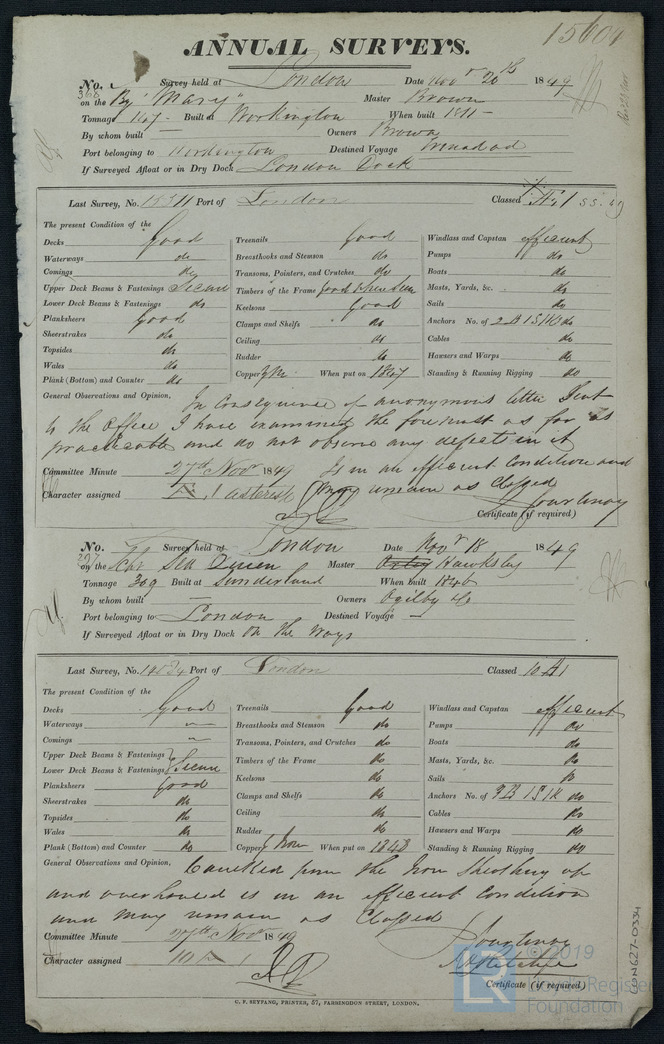 15604
ANNUAL SURVEYS.
No. Survey held at London Date Novr 26th 1849
368 on the Bg "Mary" Master Brown
Tonnage 167 Built at Workington When built 1811
By whom built — Owners Brown
Port belonging to Workington Destined Voyage Trinidad
If Surveyed Afloat or in Dry Dock London Dock
Last Survey, No. Port of London Classed Æ 1 S.S. 49
The present Condition of the
Decks Good Treenails Good Windlass and Capstan efficient
Waterways do Breasthooks and Stemson do Pumps do
Comings do Transoms, Pointers, and Crutches do Boats do
Upper Deck Beams & Fastenings Secure Timbers of the Frame good where seen Masts, Yards, &c. do
Lower Deck Beams & Fastenings do Keelsons Good Sails do
Planksheers Good Clamps and Shelfs do Anchors No. of 2 B 1 S 1 K do
Sheerstrakes do Ceiling do Cables do
Topsides do Rudder do Hawsers and Warps do
Wales do Copper When put on 1847 Standing & Running Rigging do
Plank (Bottom) and Counter do
General Observations and Opinion, In consequence of anonymous letter sent
to the Office I have examined the foremast as far as
practicable and do not observe any defects in it
Committee Minute 27th Novr 1849 Is in an efficient Condition and
Character assigned Æ 1 asterisk may remain as Classed
Courtenay
Certificate (if required)
No. Survey held at London Date Novr 18 1849
297 on the Schr Sea Queen Master Hawksley
Tonnage 309 Built at Sunderland When built 1846
By whom built — Owners Ogilby & Co
Port belonging to London Destined Voyage —
If Surveyed Afloat or in Dry Dock On the ways
Last Survey, No. Port of London Classed 10 A 1
The present Condition of the
Decks Good Treenails Good Windlass and Capstan efficient
Waterways Breasthooks and Stemson do Pumps do
Comings Transoms, Pointers, and Crutches do Boats do
Upper Deck Beams & Fastenings Timbers of the Frame do Masts, Yards, &c. do
Lower Deck Beams & Fastenings Secure Keelsons do Sails do
Planksheers Good Clamps and Shelfs do Anchors No. of 3 B 1 S 1 K do
Sheerstrakes do Ceiling do Cables do
Topsides do Rudder do Hawsers and Warps do
Wales do Copper When put on 1848 Standing & Running Rigging do
Plank (Bottom) and Counter do
General Observations and Opinion, Caulked from the Iron Sheathing up
and overhauled is in an efficient Condition
and may remain as Classed
Committee Minute 27th Novr 1849 Courtenay
Character assigned 10 A 1
Certificate (if required)
C. F. SEYFANG, PRINTER, 57, FARRINGDON STREET, LONDON.
LON627-0334
©2019
LR
Lloyd's Register
Foundation